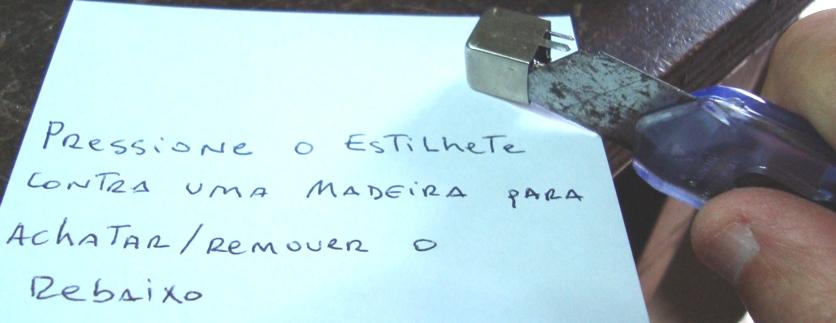 PRESSIONE O ESTILHETE
CONTRA UMA MADEIRA PARA
ACHATAR/REMOVER O
REBAIXO